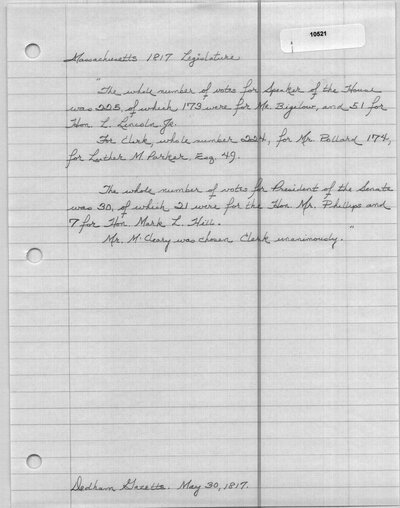 10521
Massachusetts 1817 Legislature
"The whole number of votes for Speaker of the House
was 225, of which 173 were for Mr. Bigelow, and 51 for
Hon. L. Lincoln Jr.
For Clerk, whole number 224, for Mr. Pollard 174,
for Luther M. Parker, Esq. 49.
The whole number of votes for President of the Senate
was 30, of which 21 were for the Hon. Mr. Phillips and
7 for Hon. Mark L. Hill.
Mr. McCleary was chosen Clerk unanimously."
Dedham Gazette. May 30, 1817.